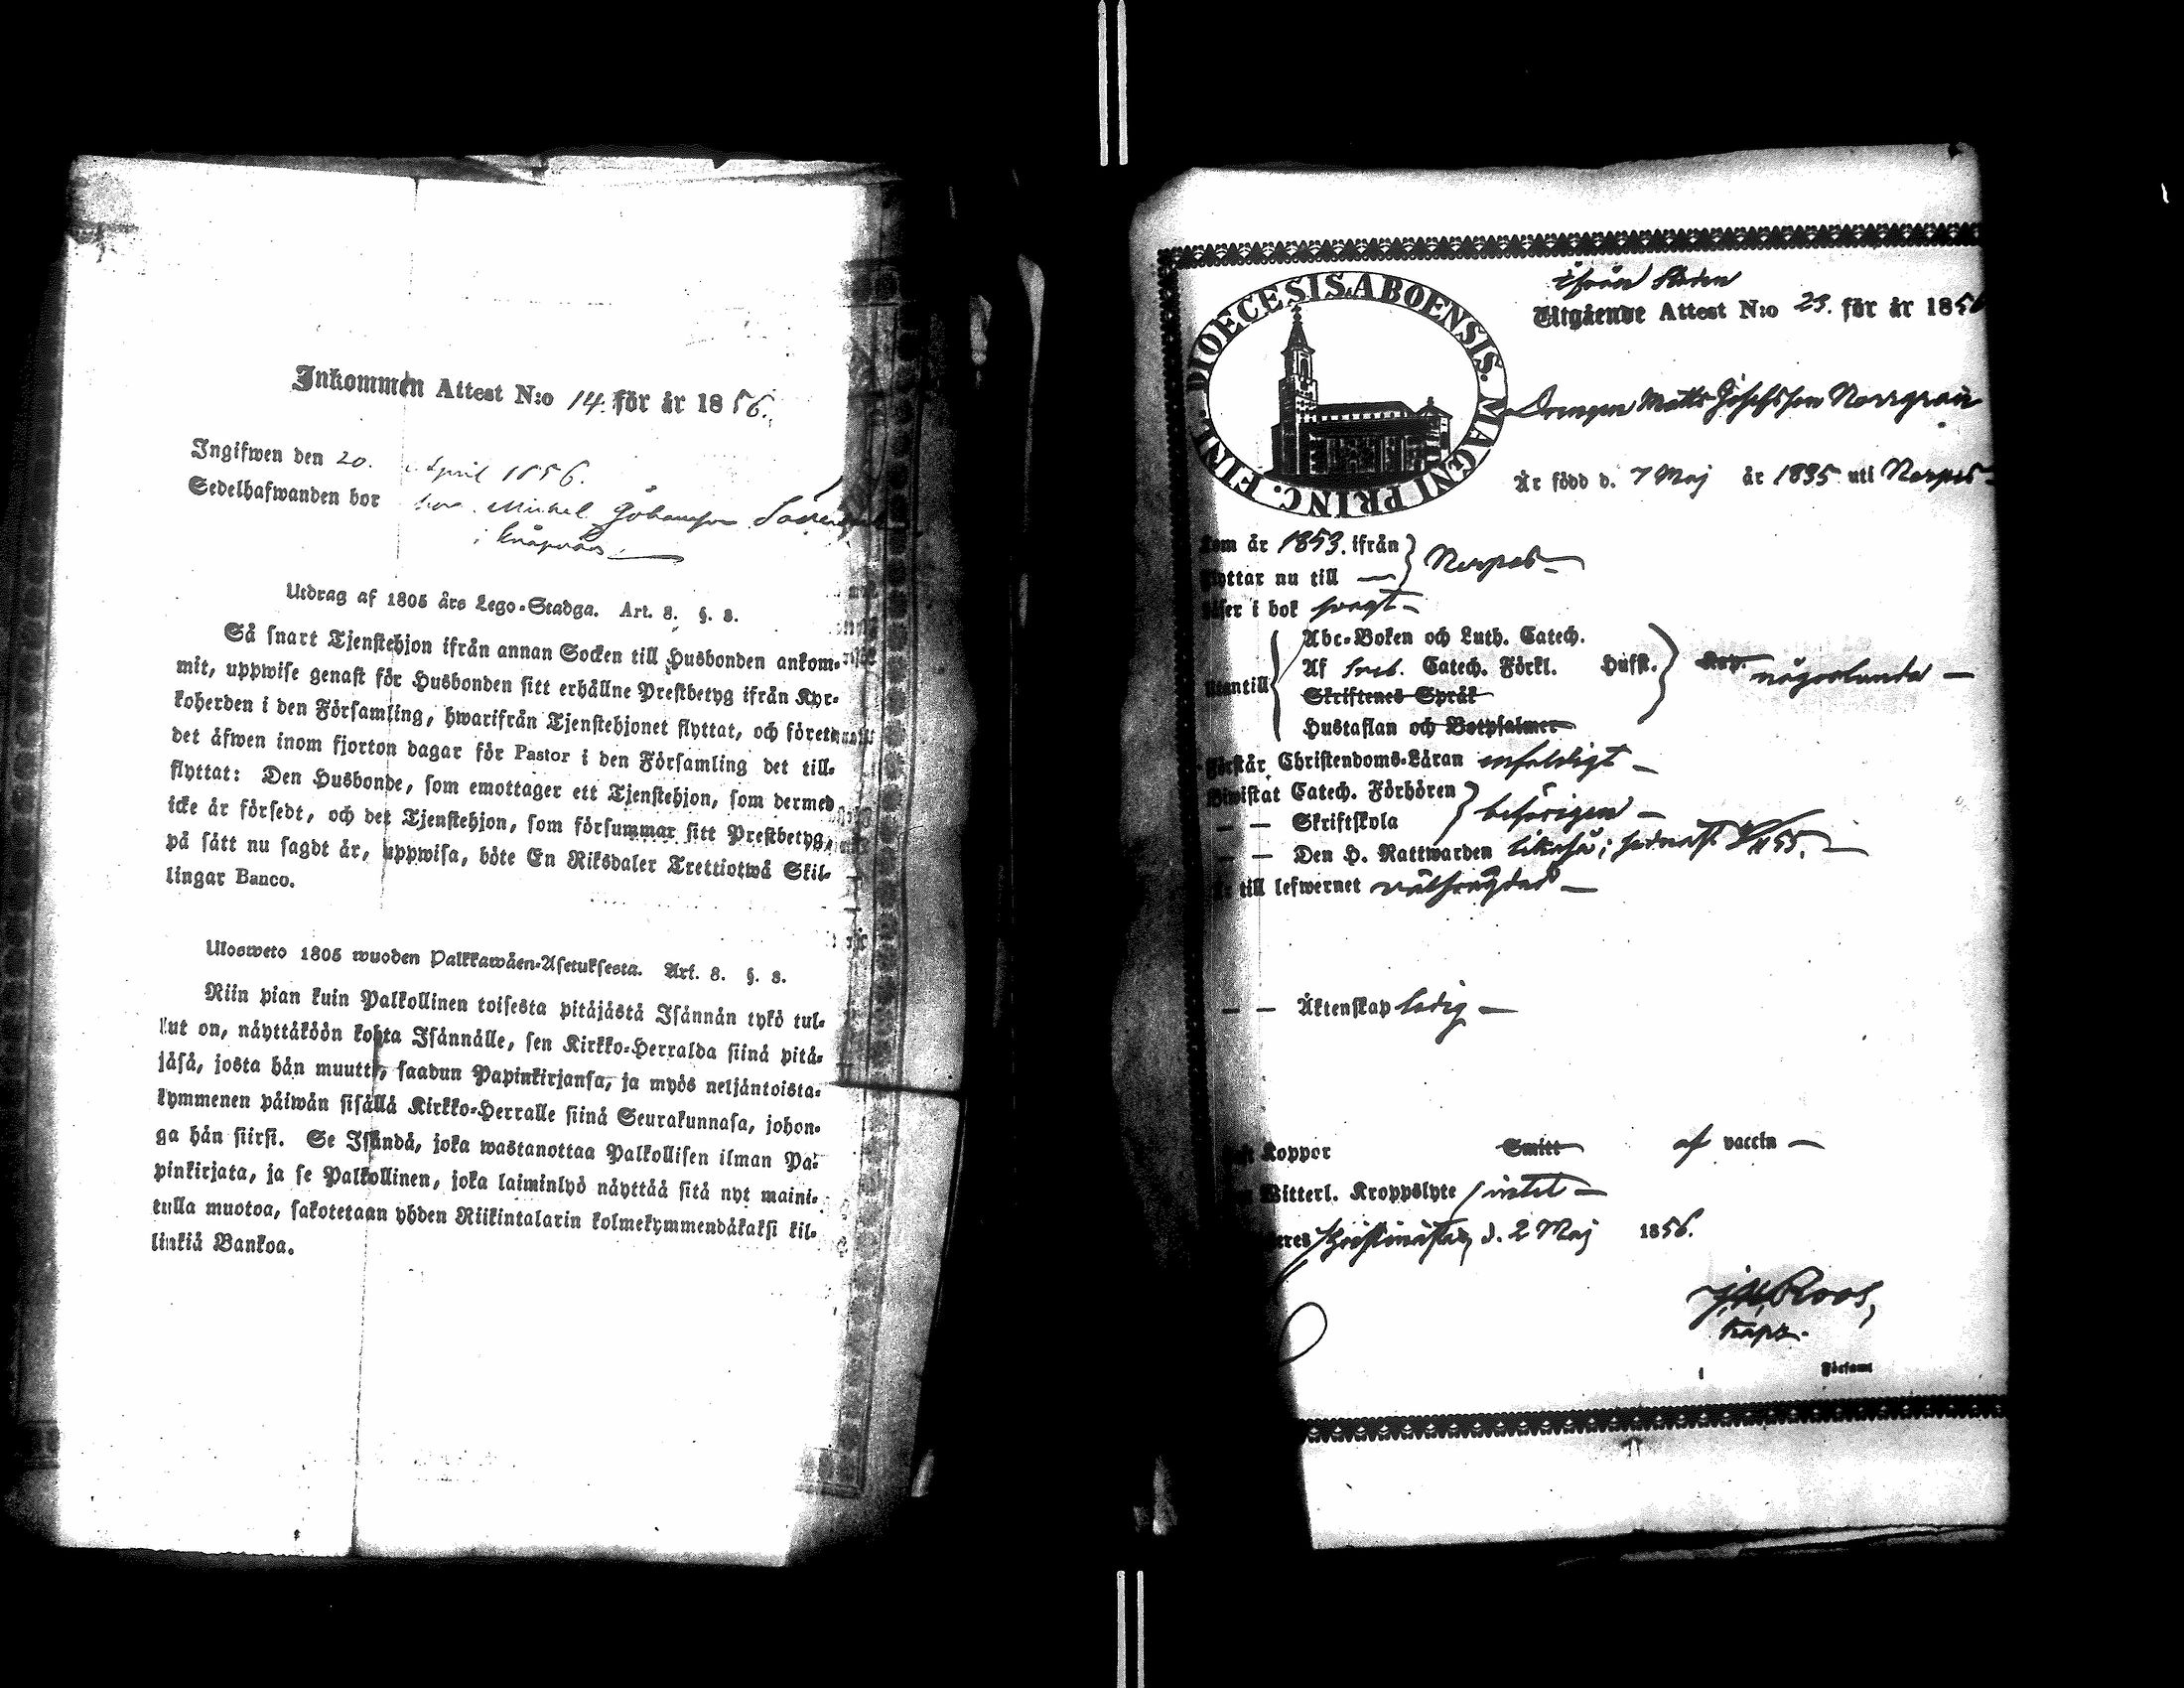 Inkommen Attest N:o 14. för år 1856.
Ingifwen den 20. April 1856.
Sedelhafwanden bor hos Michel Johansson
i
Utdrag af 1805 års Lego-Stadga. Art. 8. §. 8.
Så snart Tjenstehjon ifrån annan Socken till Husbonden ankom-
mit, uppwise genast för Husbonden sitt erhållne Prestbetyg ifrån Kyr-
koherden i den Församling, hwarifrån Tjenstehjonet flyttat, och förete
det äfwen inom fjorton dagar för Pastor i den Församling det till-
flyttat: Den Husbonde, som emottager ett Tjenstehjon, som dermed
icke är försedt, och det Tjenstehjon, som försummar sitt Prestbetyg,
på sätt nu sagdt är, uppwisa, böte En Riksdaler Trettiotwå Skil-
lingar Banco.
Ulosweto 1805 wuoden Palkkawäen-Asetuksesta. Art. 8. §. 8.
Niin pian kuin Palkollinen toisesta pitäjästä Isännän tykö tul-
lut on, näyttäköön kohta Isännälle, sen Kirkko-Herralda siinä pitä-
jäsä, josta hän muutti, saadun Papinkirjansa, ja myös neljäntoista-
kymmenen päiwän sisällä Kirkko-Herralle siinä Seurakunnasa, johon-
ga hän siirsi. Se Isändä, joka wastanottaa Palkollisen ilman Pa-
pinkirjata, ja se Palkollinen, joka laiminlyö näyttää sitä nyt maini-
tulla muotoa, sakotetaan yhden Riikintalarin kolmekymmendäkaksi kil-
linkiä Bankoa.
DIOECESIS ABOENSIS. MAGNI PRINC. FINL.
ifrån Staden
Utgående Attest N:o 23. för år 1856
Drengen Matts Josephsson Norrgrän
Är född d. 7 Maj år 1835 uti Nerpes
kom år 1853. ifrån
flyttar nu till — Nerpes
läser i bok svagt
Abc-Boken och Luth. Catech.
Af Sveb. Catech. Förkl. Hufst.
Utantill Skriftenes Språk någorlunda
Hustaflan och Botpsalmer
Förstår Christendoms-Läran enfaldigt
Biwistat Catech. Förhören
— — Skriftskola behörigen
— — Den H. Nattwarden likaså; sednast 55.
Är till lefwernet välfrägdad
— — Äktenskap ledig
Haft Koppor Smitt af vaccin
Witterl. Kroppslyte intet
Christinæstad, d. 2 Maj 1856.
J. W. Roos,
Kapl.
i Församl